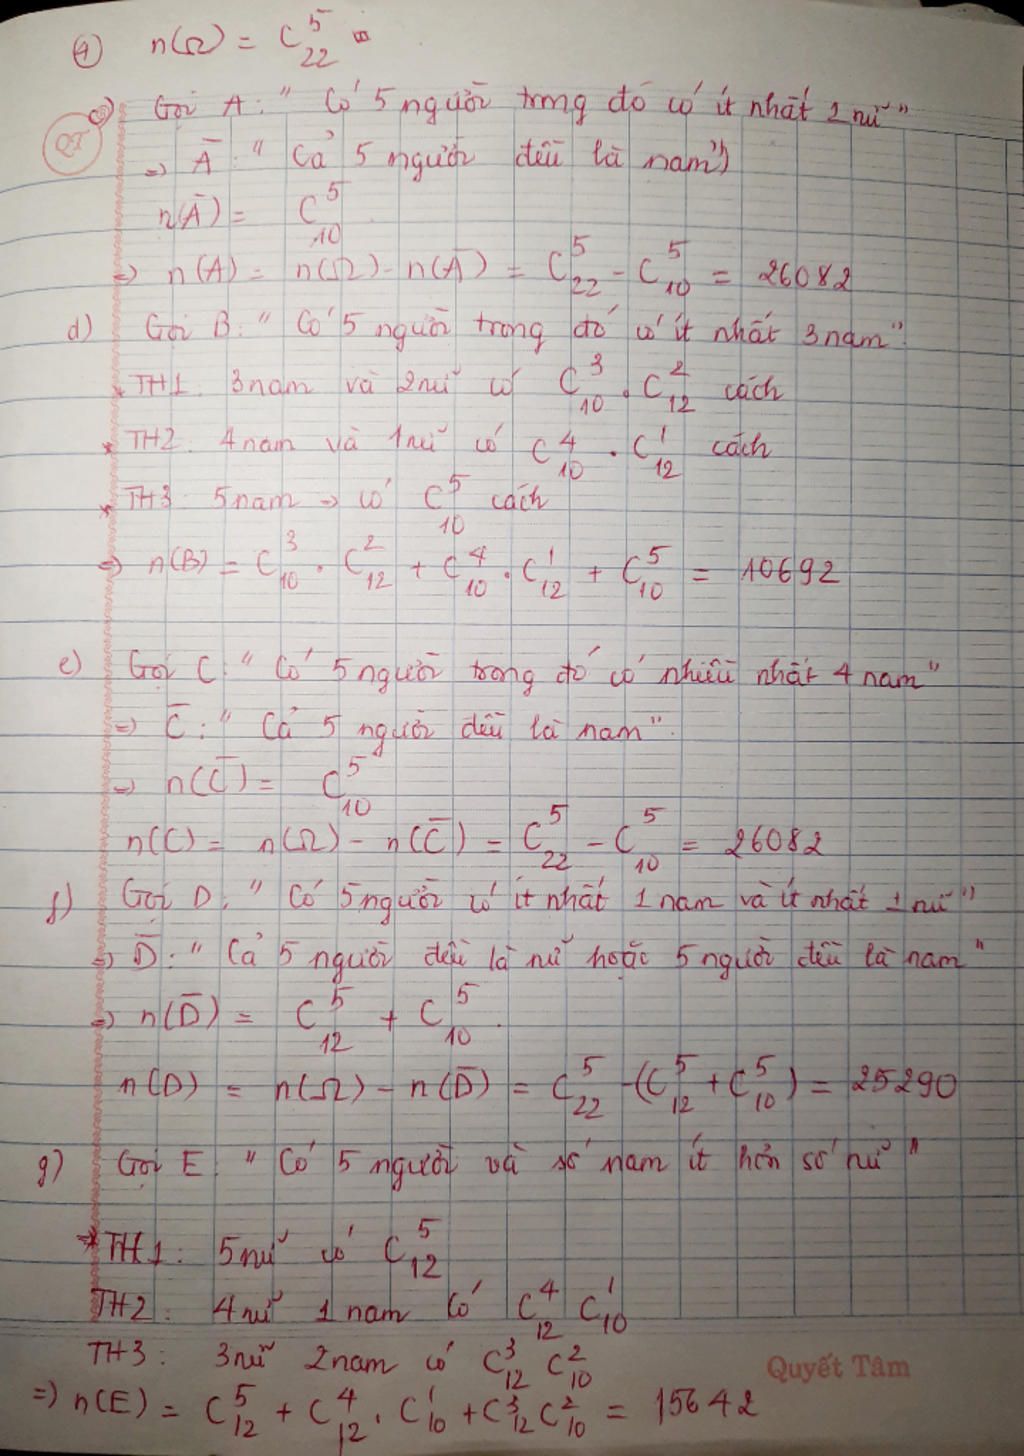 ④ n(Ω) = C⁵₂₂
c) Gọi A: " Có 5 người trong đó có ít nhất 1 nữ "
QT
⇒ A̅: " Cả 5 người đều là nam")
n(A̅) = C⁵₁₀
⇒ n(A) = n(Ω) - n(A̅) = C⁵₂₂ - C⁵₁₀ = 26082
d) Gọi B: " Có 5 người trong đó có ít nhất 3 nam"
* TH1: 3 nam và 2 nữ có C³₁₀ . C²₁₂ cách
* TH2: 4 nam và 1 nữ có C⁴₁₀ . C¹₁₂ cách
* TH3: 5 nam → có C⁵₁₀ cách
⇒ n(B) = C³₁₀ . C²₁₂ + C⁴₁₀ . C¹₁₂ + C⁵₁₀ = 10692
e) Gọi C: " Có 5 người trong đó có nhiều nhất 4 nam"
⇒ C̅: " Cả 5 người đều là nam".
⇒ n(C̅) = C⁵₁₀
n(C) = n(Ω) - n(C̅) = C⁵₂₂ - C⁵₁₀ = 26082
f) Gọi D: " Có 5 người có ít nhất 1 nam và ít nhất 1 nữ"
⇒ D̅: " Cả 5 người đều là nữ hoặc 5 người đều là nam"
⇒ n(D̅) = C⁵₁₂ + C⁵₁₀.
n(D) = n(Ω) - n(D̅) = C⁵₂₂ - (C⁵₁₂ + C⁵₁₀) = 25290
g) Gọi E: " Có 5 người và số nam ít hơn số nữ "
* TH1: 5 nữ có C⁵₁₂
TH2: 4 nữ 1 nam có C⁴₁₂ C¹₁₀
TH3: 3 nữ 2 nam có C³₁₂ C²₁₀
Quyết Tâm
⇒ n(E) = C⁵₁₂ + C⁴₁₂ . C¹₁₀ + C³₁₂ C²₁₀ = 15642